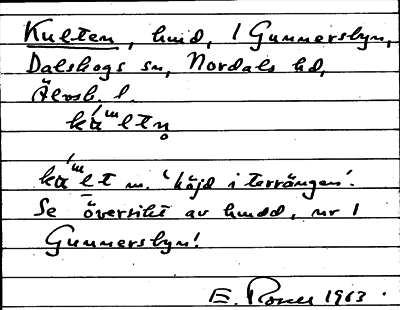 Kulten, hmd, 1 Gunnersbyn,
Dalskogs sn, Nordals hd,
Älvsb. l.
kɯ́ltn̥
kɯ́lt m. 'höjd i terrängen'.
Se översikt av hmdd, nr 1
Gunnersbyn!
E. Rosén 1963.